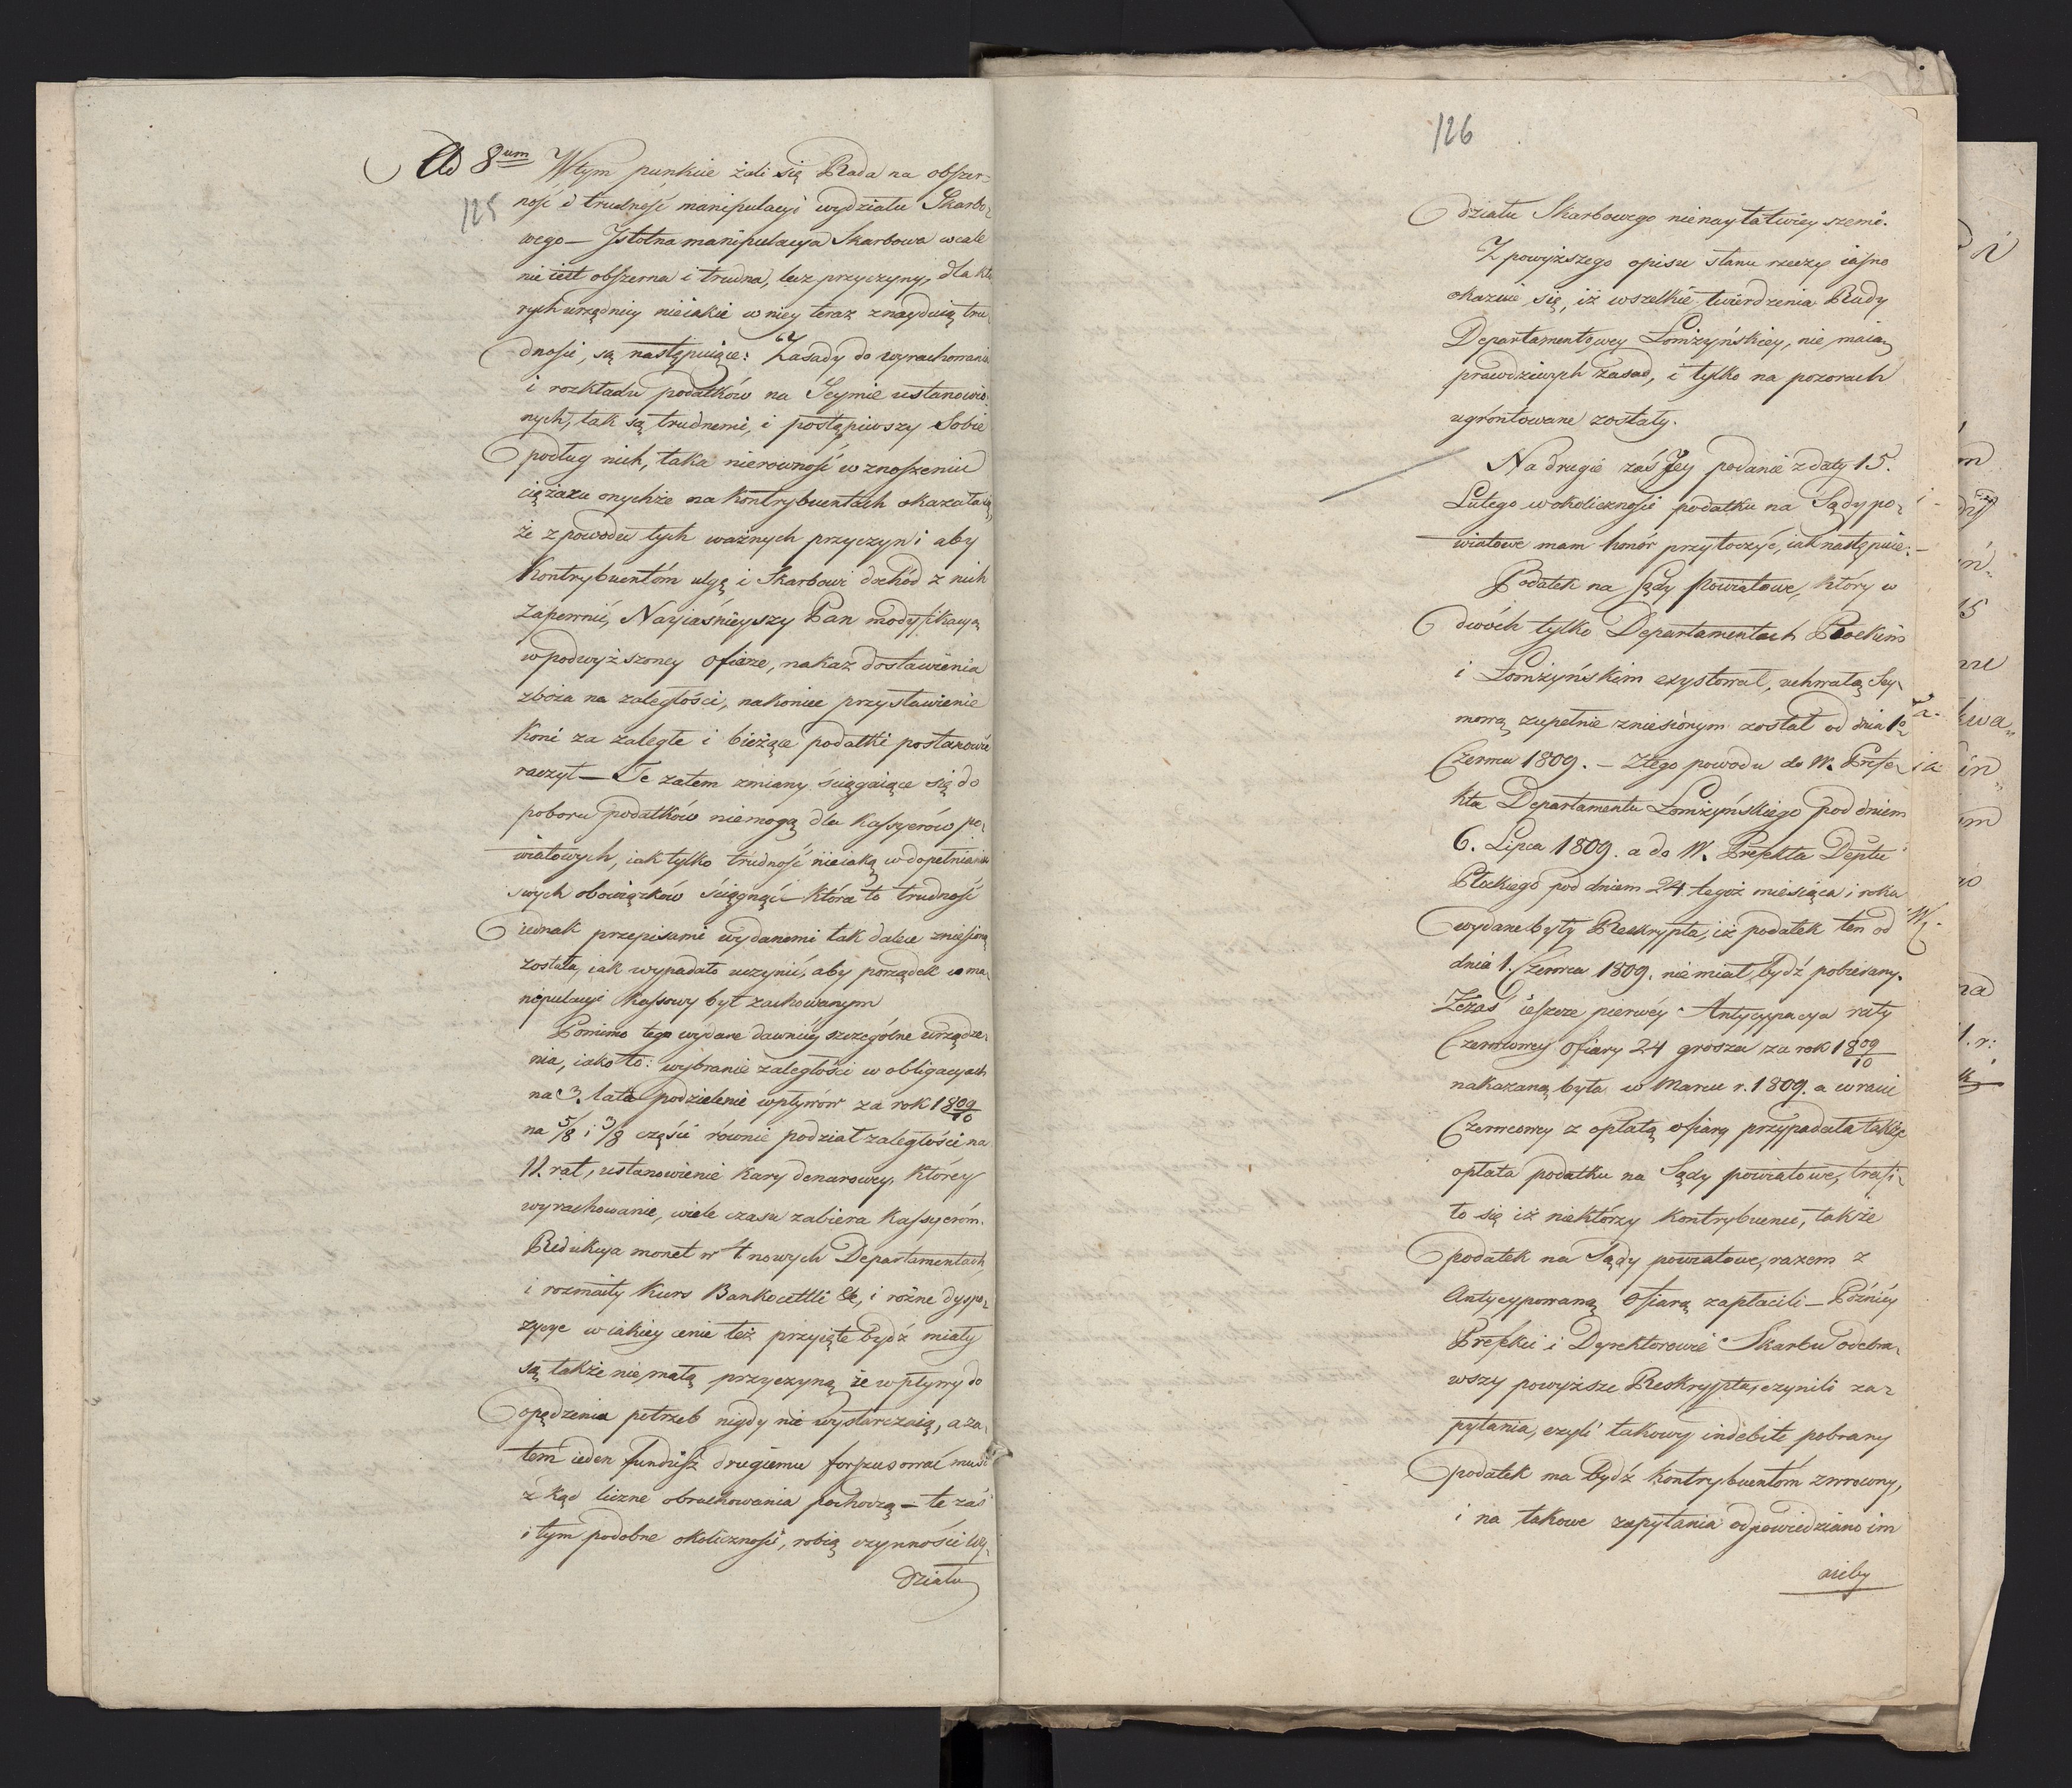 Ad 8um Wtym punkcie żali się Rada na obszer=
125
ność i trudność manipulacyi wydziału Skarbo-
wego — Istotna manipulacya Skarbowa wcale
nie iest obszerna i trudna, lecz przyczyny, dla któ
rych urzędnicy nieiakie w niey teraz znayduią tru-
dności, są następuiące: Zasady do wyrachowania
i rozkładu podatków na Seymie ustanowio-
nych, tak są trudnemi, i postąpiwszy Sobie
podług nich, taka nierowność w znoszeniu
ciężaru onychże na Kontrybuentach okazała się,
że z powodu tych ważnych przyczyn i aby
Kontrybuentóm ulgę i Skarbowi dochód z nich
zapewnić, Nayiaśnieyszy Pan modyfikacyą
w podwyższoney ofiarze, nakaz dostawienia
zboża na zaległości, nakoniec przystawienie
Koni za zaległe i bieżące podatki postanowić
raczył — Te zatem zmiany ściągaiące się do
poboru podatków niemogą dla Kassyerów po-
wiatowych, iak tylko trudność nieiaką w dopełnianiu
swych obowiązków ściągnąć — która to trudność
iednak przepisami wydanemi tak dalece zniesioną
została, iak wypadało uczynić, aby porządek w ma-
nipulacyi Kassowy był zachowanym
Pomimo tego wydane dawniéy szczególne urządze-
nia, iako to: wybranie zaległości w obligacyach
na 3. lata podzielenie wpływów za rok 1809/10
na 5/8 i 3/8 części równie podział zaległości na
11. rat, ustanowienie kary denarowey, którey
wyrachowanie, wiele czasu zabiera Kassyeróm.
Redukcya monet w 4 nowych Departamentach,
i rozmaity Kurs Bankocetlli &c, i rożne dyspo-
zycye w iakiey cenie też przyięte bydź miały
są także niemałą przyczyną że wpływy do
opędzenia potrzeb nigdy nie wystarczaią, a za-
tem ieden fundusz drugiemu forszusować musi
z kąd liczne obrachowania pochodzą — te zaś
i tym podobne okoliczności, robią czynności Wy-
działu
126
działu Skarbowego nie nayłatwieyszemi.
Z powyższego opisu stanu rzeczy iasno
okazuie się, iż wszelkie twierdzenia Rady
Departamentowey Łomżyńskiey, nie maią
prawdziwych zasad, i tylko na pozorach
ugrontowane zostały.
Na drugie zaś Jey podanie z daty 15.
Lutego w okoliczności podatku na Sądy po-
wiatowe mam honór przytoczyć, iak następuie:
Podatek na Sądy Powiatowe, który w
dwóch tylko Departamentach Płockim
i Łomżyńskim exystował, uchwałą Sey-
mową zupełnie zniesionym został od dnia 1o
Czerwca 1809. — Z tego powodu do W. Prefe-
kta Departamentu Łomżyńskiego pod dniem
6. Lipca 1809. a do W. Prefekta Deptu
Płockiego pod dniem 24 tegoż miesiąca i roku
wydane były Reskrypta, iż podatek ten od
dnia 1. Czerwca 1809. nie miał bydź pobierany.
Zczaś ieszcze pierwéy Antycypacya raty
Czerwcowey ofiary 24 grosza za rok 1809/10
nakazaną była w Marcu r. 1809. a w racie
Czerwcowey z opłatą ofiary przypadała także
opłata podatku na Sądy powiatowe, trafi-
ło się iż niektórzy Kontrybuenci, także
podatek na Sądy powiatowe, razem z
Antycypowaną Ofiarą zapłacili — Późniey
Prefekci i Dyrektorowie Skarbu odebra-
wszy powyższe Reskrypta, czynili za-
pytania, czyli takowy indebite pobrany
podatek ma bydź Kontrybuentóm zwrócony,
i na takowe zapytania odpowiedziano im
ażeby